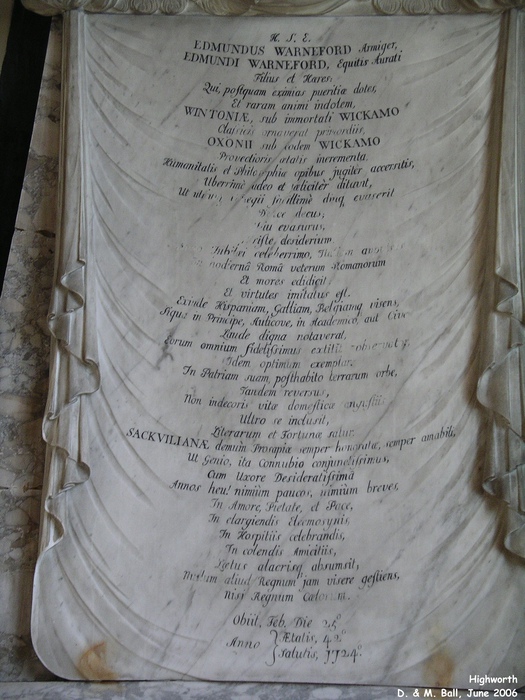 H. S. E.
EDMUNDUS WARNEFORD Armiger,
EDMUNDI WARNEFORD, Equitis Aurati
Filius et Hæres.
Qui, postquam eximias pueritiæ dotes,
Et raram animi indolem,
WINTONIÆ, sub immortali WICKAMO
Classicis ornaverat primordiis,
OXONII sub eodem WICKAMO
Provectioris ætatis incrementa
Humanitatis et Philosophiæ opibus jugiter accersitis,
Uberrime adeo et feliciter ditavit,
Ut evaserit
decus;
evasurus,
triste, desiderium
celeberrimo,
Roma veterum Romanorum
Et mores edidicit,
Et virtutes imitatus est.
Exinde Hispaniam, Galliam, Belgiamq visens,
Siqua in Principe, Aulicove, in Academico, aut Cive
Laude digna notaverat,
Eorum omnium fidelissimus extitit
Idem optimum exemplar.
In Patriam suam, posthabito terrarum orbe,
Tandem reversus,
Non indecoris vitæ domesticæ angustiis
Ultro se inclusit,
Literarum et Fortunæ satur.
SACKVILIANÆ demum Prosapiæ semper honoratæ, semper amabili,
Ut Genio, ita Connubio conjunctissimus,
Cum Uxore Desideratissimâ
Annos heu! nimiùm paucos, nimiùm breves,
In Amore, Pietate, et Pace,
In elargiendis Eleemosynis,
In Hospitiis celebrandis,
In colendis Amicitiis,
Lætus alacrisq absumsit,
Nullum aliud Regnum jam visere gestiens,
Nisi Regnum Cælorum.
Obiit, Feb. Die 25º
Anno { Ætatis, 42º
Salutis, 1724º
Highworth
D. & M. Ball, June 2006